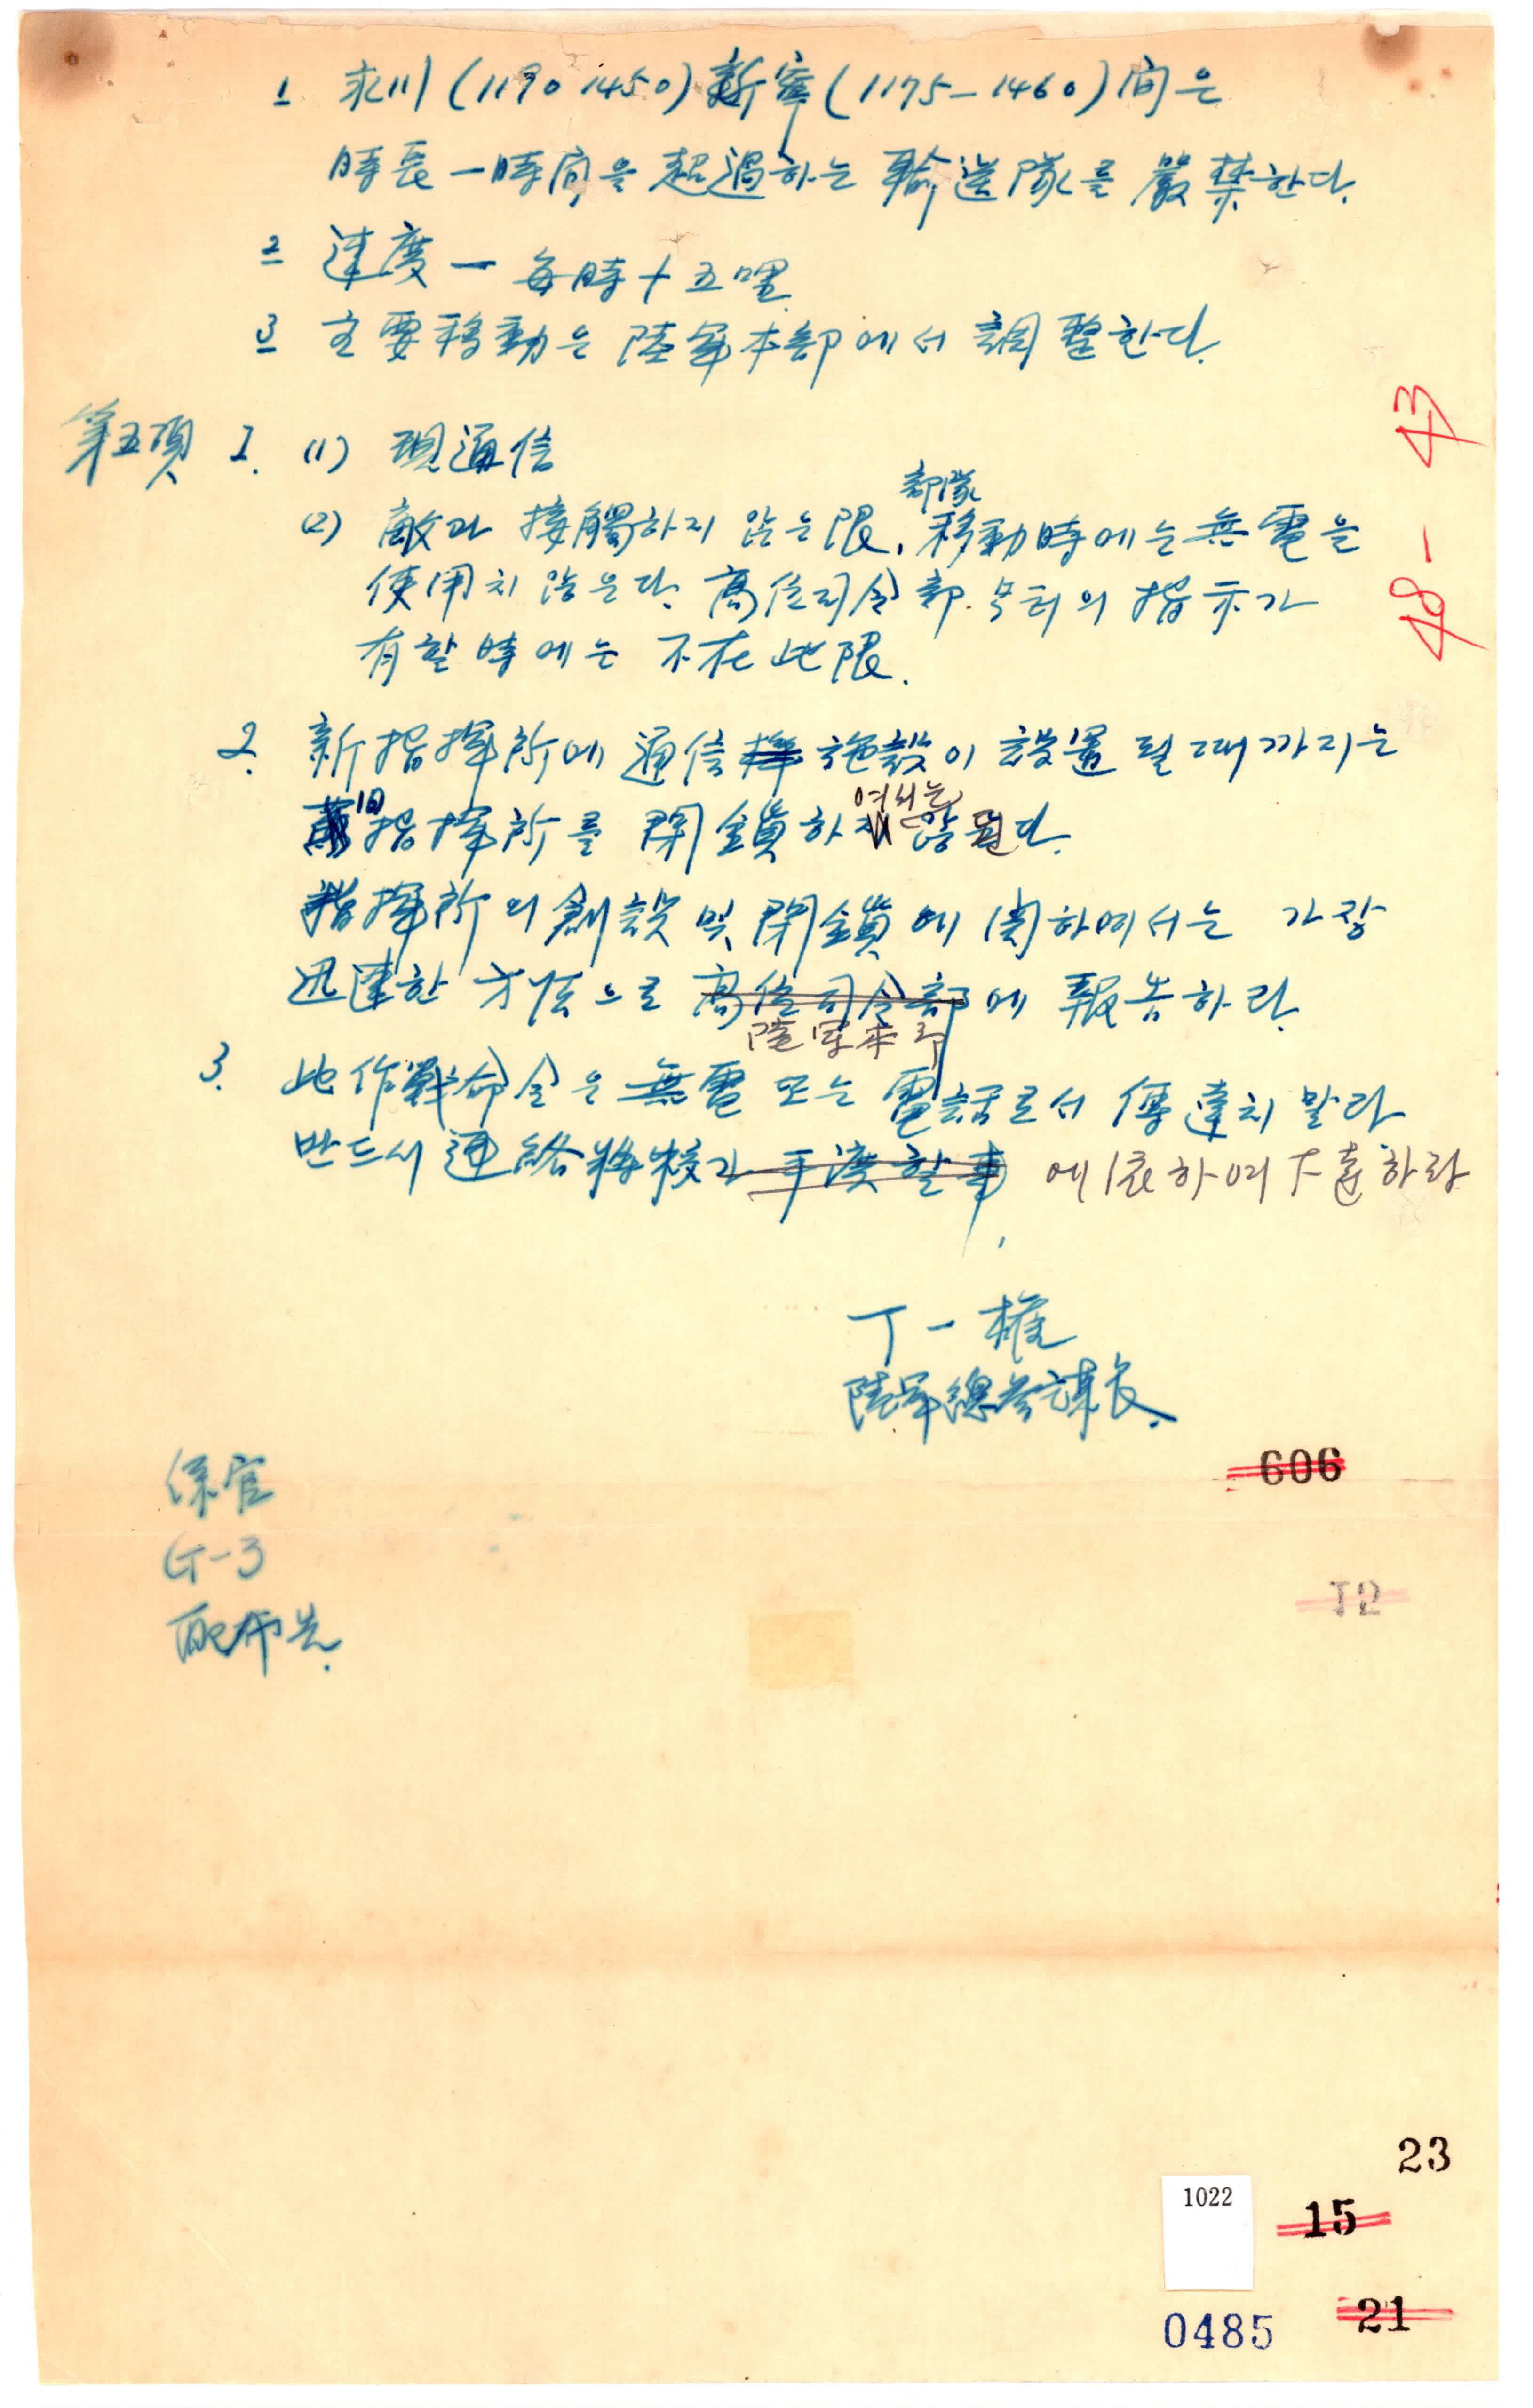 1 永川 (1190 1450) 新寧 (1175-1460) 间은
時長 一時间을 超過하는 輸送隊를 嚴禁한다.
2 速度 一 每時 十五哩
3 主要移動은 陸軍本部에서 調整한다.
第五項 1. (1) 現通信
部隊
(2) 敵과 接觸하지 않는限, 移動時에는 無電을
使用치 않는다. 高位司令部부터의 指示가
有할 時에는 不在此限.
2. 新指揮所에 通信 施設이 設置 될때까지는
여서는
旧指揮所를 閉鎖하 않된다.
指揮所의 創設 및 閉鎖에 関하여서는 가장
迅速한 方法으로 高位司令部에 報告하라.
陸軍本部
3. 此作戰命令은 無電 또는 電話로서 傳達치 말라
반드시 連絡將校가 手渡할事 에依하여 下達하라
丁一權
陸軍總參謀長.
係官
G-3
配布先.
48-43
606
12
23
1022
15
21
0485